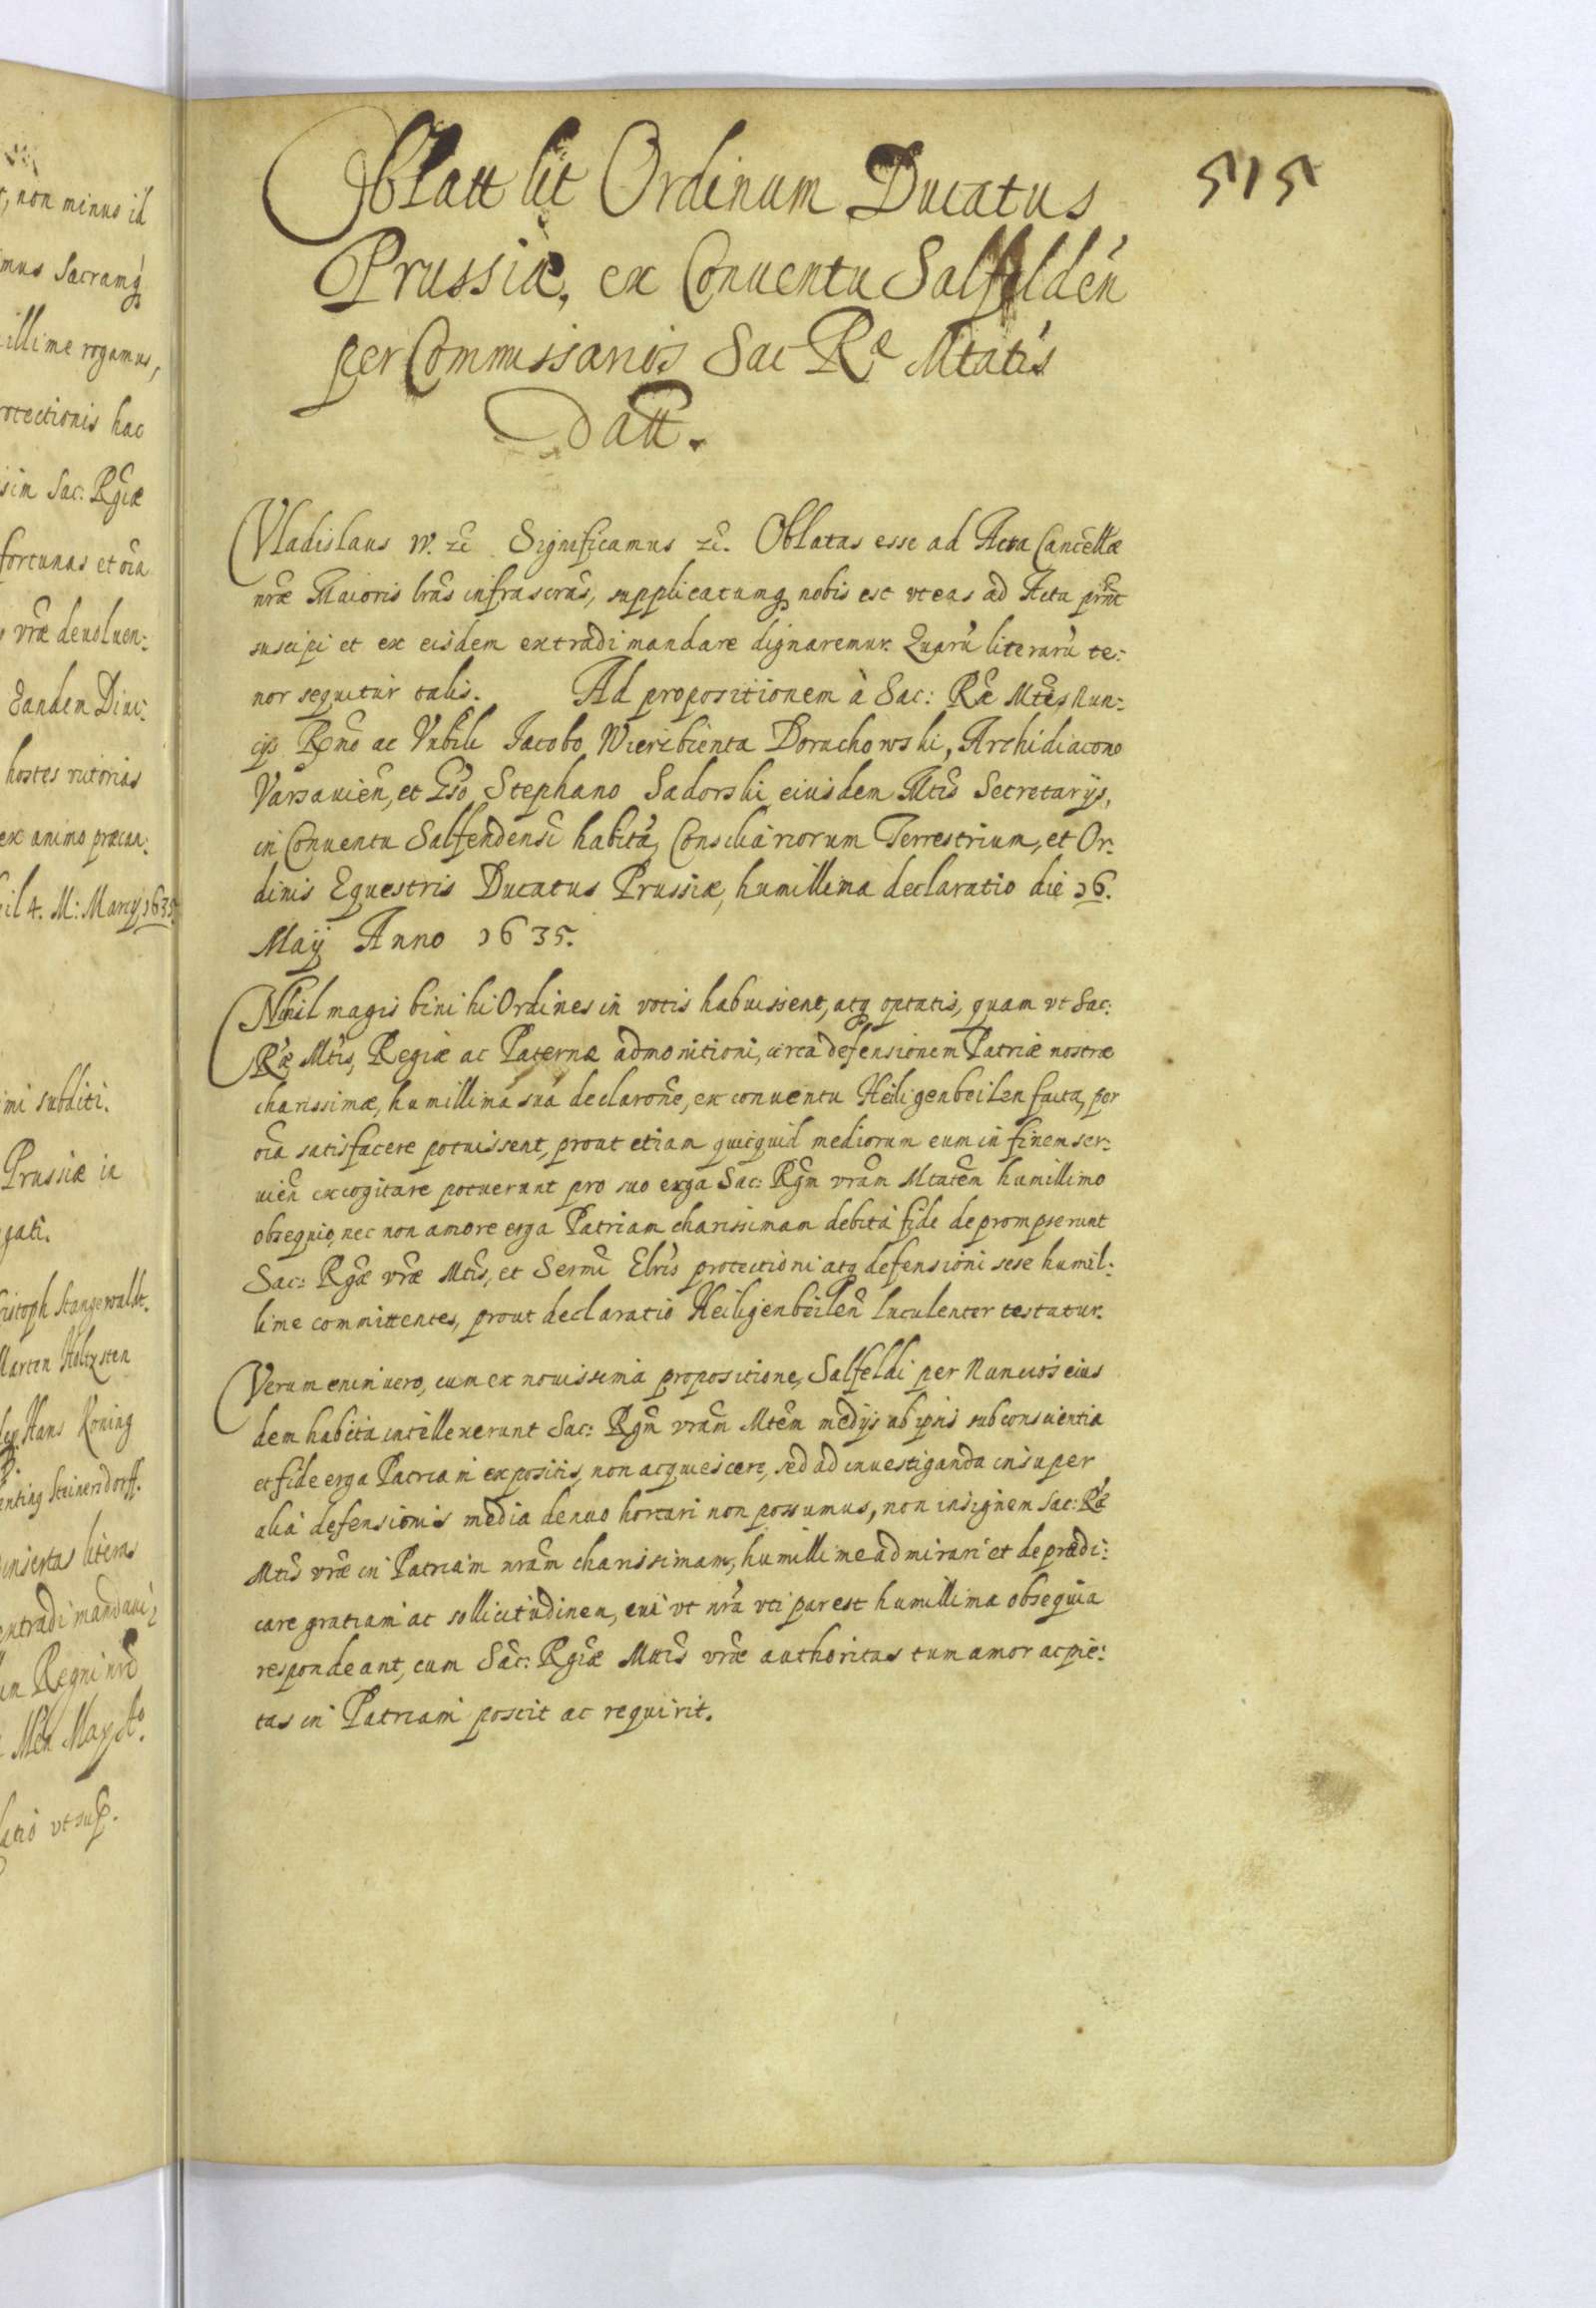 t, non minus id
mus Sacramq́
illime rogamus,
rotectionis hac
sim Sac: Rg̃iæ
fortunas et oĩa
vr̃æ deuoluen:
Eandem Diui:
hostes victorias
ex animo præcan:
il 4. M: Marcij 1635.
mi subditi.
Prussiæ in
gati.
ristoph Stangewaldt.
Marten Holtzsten
Hans Koning
enting Steinersdorff.
insertas literas
extradi mandaui:
in Regni nrĩ
Men Maij Aº.
latio vt sup̃.
515
Oblatt lit Ordinum Ducatus
Prussiæ, ex Conuentu Salfelden̄
per Commissarios Sac Rᵉ Mtatis
Datt.
Vladislaus IV. zc̃ Significamus zc̃. Oblatas esse ad Acta Cancell̃æ
nr̃æ Maioris lr̃as infrascr̃as, supplicatumq nobis est vt eas ad Acta pr̃nt
suscipi et ex eisdem extradi mandare dignaremur. Quarũ literarũ te:
nor sequitur talis. Ad propositionem à Sac: Ræ Mtis Nun:
cijs Rnd̃o ac Vnbili Jacobo Wieribienta Doruchowski, Archidiacono
Varsauien̄, et Gs̃o Stephano Sadorski eiusdem Mtis̃ Secretarijs,
in Conuentu Salfendensi habitã, Consiliariorum Terrestrium, et Or:
dinis Equestris Ducatus Prussiæ, humillima declaratio die 16.
Maij Anno 1635.
Nihil magis bini hi Ordines in votis habuissent, atq optatis, quam vt Sac:
Ræ Mtis, Regiæ ac Paternæ admonitioni, circa defensionem Patriæ nostræ
charissimæ, humillimá suá declarone̅, ex conuentu Heiligenbeilen facta, per
oĩa satisfacere potuissent, prout etiam quicquid mediorum eum in finem ser:
uien̄ excogitare potuerunt pro suo erga Sac: Rgm̃ vram̃ Mtatem̃ humillimo
obsequio, nec non amore erga Patriam charissimam debitá fide deprompserunt
Sac: Rg̃æ vr̃æ Mtis̃, et Sermi Elris protectioni atq defensioni sese humil:
lime committentes, prout declaratio Heiligenbeilen̄ luculenter testatur.
Verum enim uero, cum ex nouissimá propositione, Salfeldi per Nuncios eius
dem habitá intellexerunt Sac: Rgm̃ vram̃ Mtem̃ medijs ab ipsis sub consuentia
et fide erga Patriam expositis, non acquiescere, sed ad inuestiganda insuper
alia defensionis media denuo hortari non possumus, non insignem Sac: Ræ
Mtis̃ vr̃æ in Patriam nram̃ charissimam, humillime admirari et deprædi:
care gratiam ac sollicitudinem, cui vt nr̃a vti par est humillima obsequia
respondeant, cum Sac̃: Rg̃iæ Mttis̃ vr̃æ authoritas tum amor ac pie:
tas in Patriam poscit ac requirit.